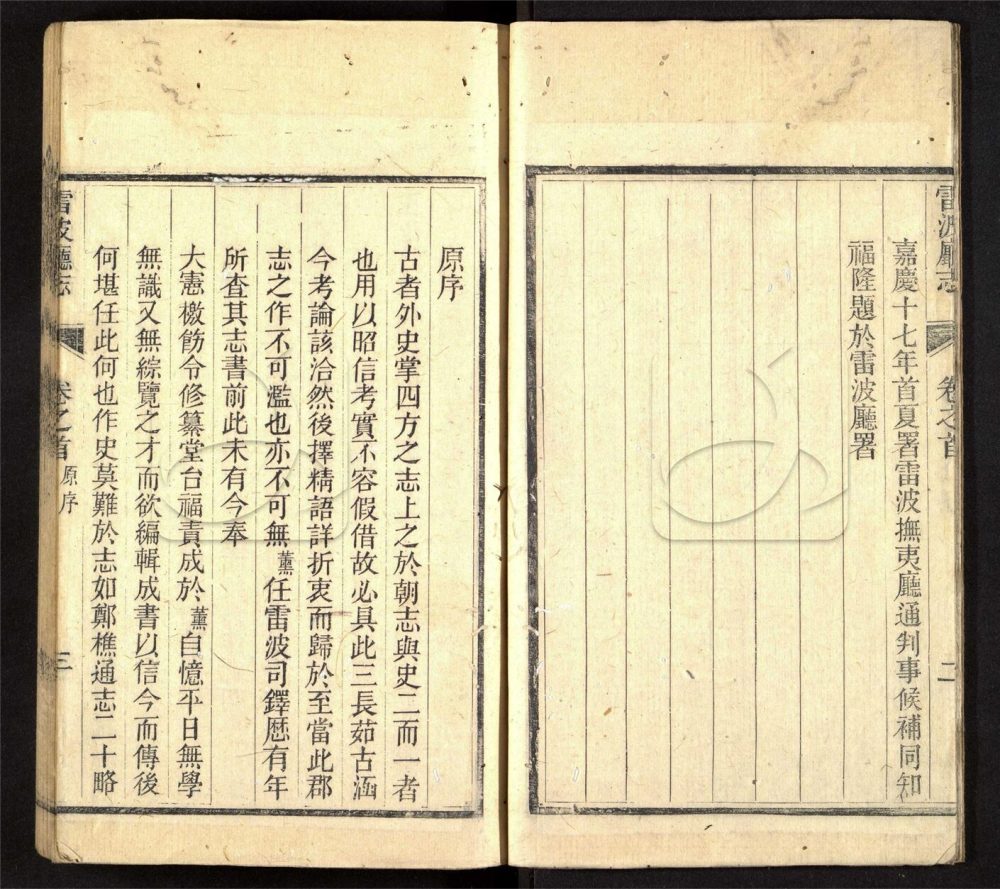 雷波廳志
卷之首
二
嘉慶十七年首夏署雷波撫夷廳通判事候補同知
福隆題於雷波廳署
原序
古者外史掌四方之志上之於朝志與史二而一者
也用以昭信考實不容假借故必具此三長茹古涵
今考論該洽然後擇精語詳折衷而歸於至當此郡
志之作不可濫也亦不可無薰任雷波司鐸歷有年
所查其志書前此未有今奉
大憲檄飭令修纂堂台福責成於薰自憶平日無學
無識又無綜覽之才而欲編輯成書以信今而傳後
何堪任此何也作史莫難於志如鄭樵通志二十略
雷波廳志
卷之首
原序
三